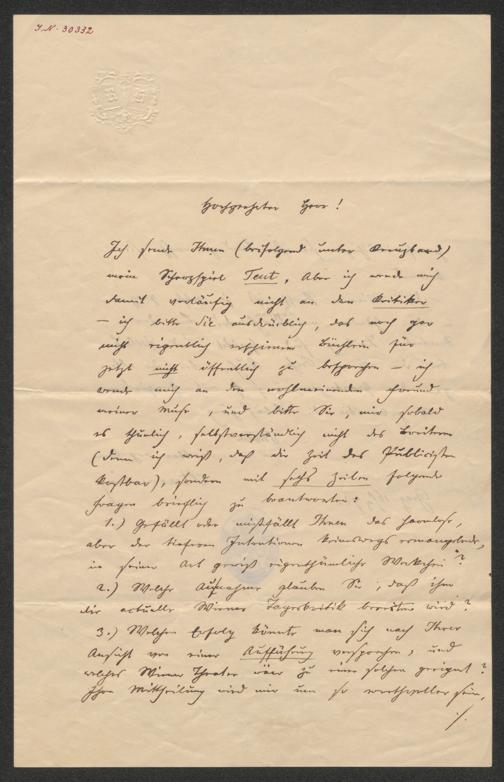 I.N. 30332
Hochgeehrter Herr!
Ich sende Ihnen (beifolgend unter Kreuzband)
mein Scherzspiel Teut, Aber ich wende mich
damit vorläufig nicht an den Kritiker
– ich bitte Sie ausdrücklich, das noch gar
nicht eigentlich erschienene Büchlein für
jetzt nicht öffentlich zu besprechen – ich
wende mich an den wohlmeinenden Freund
meiner Muse, und bitte Sie, mir sobald
es thunlich, selbstverständlich nicht des Breiteren
(denn ich weiß, daß die Zeit des Publicisten
kostbar), sondern mit sechs Zeilen folgende
Fragen brieflich zu beantworten:
1.) Gefällt oder mißfällt Ihnen das harmlose,
aber der tieferen Intentionen keineswegs ermangelnde,
in seiner Art gewiß eigenthümliche Werkchen?
2.) Welche Aufnahme glauben Sie, daß ihm
die actuelle Wiener Tageskritik bereiten wird?
3.) Welchen Erfolg könnte man sich nach Ihrer
Ansicht von einer Aufführung versprechen, und
welches Wiener Theater wäre zu einer solchen geeignet?
Ihre Mittheilung wird mir um so werthvoller sein,
./.